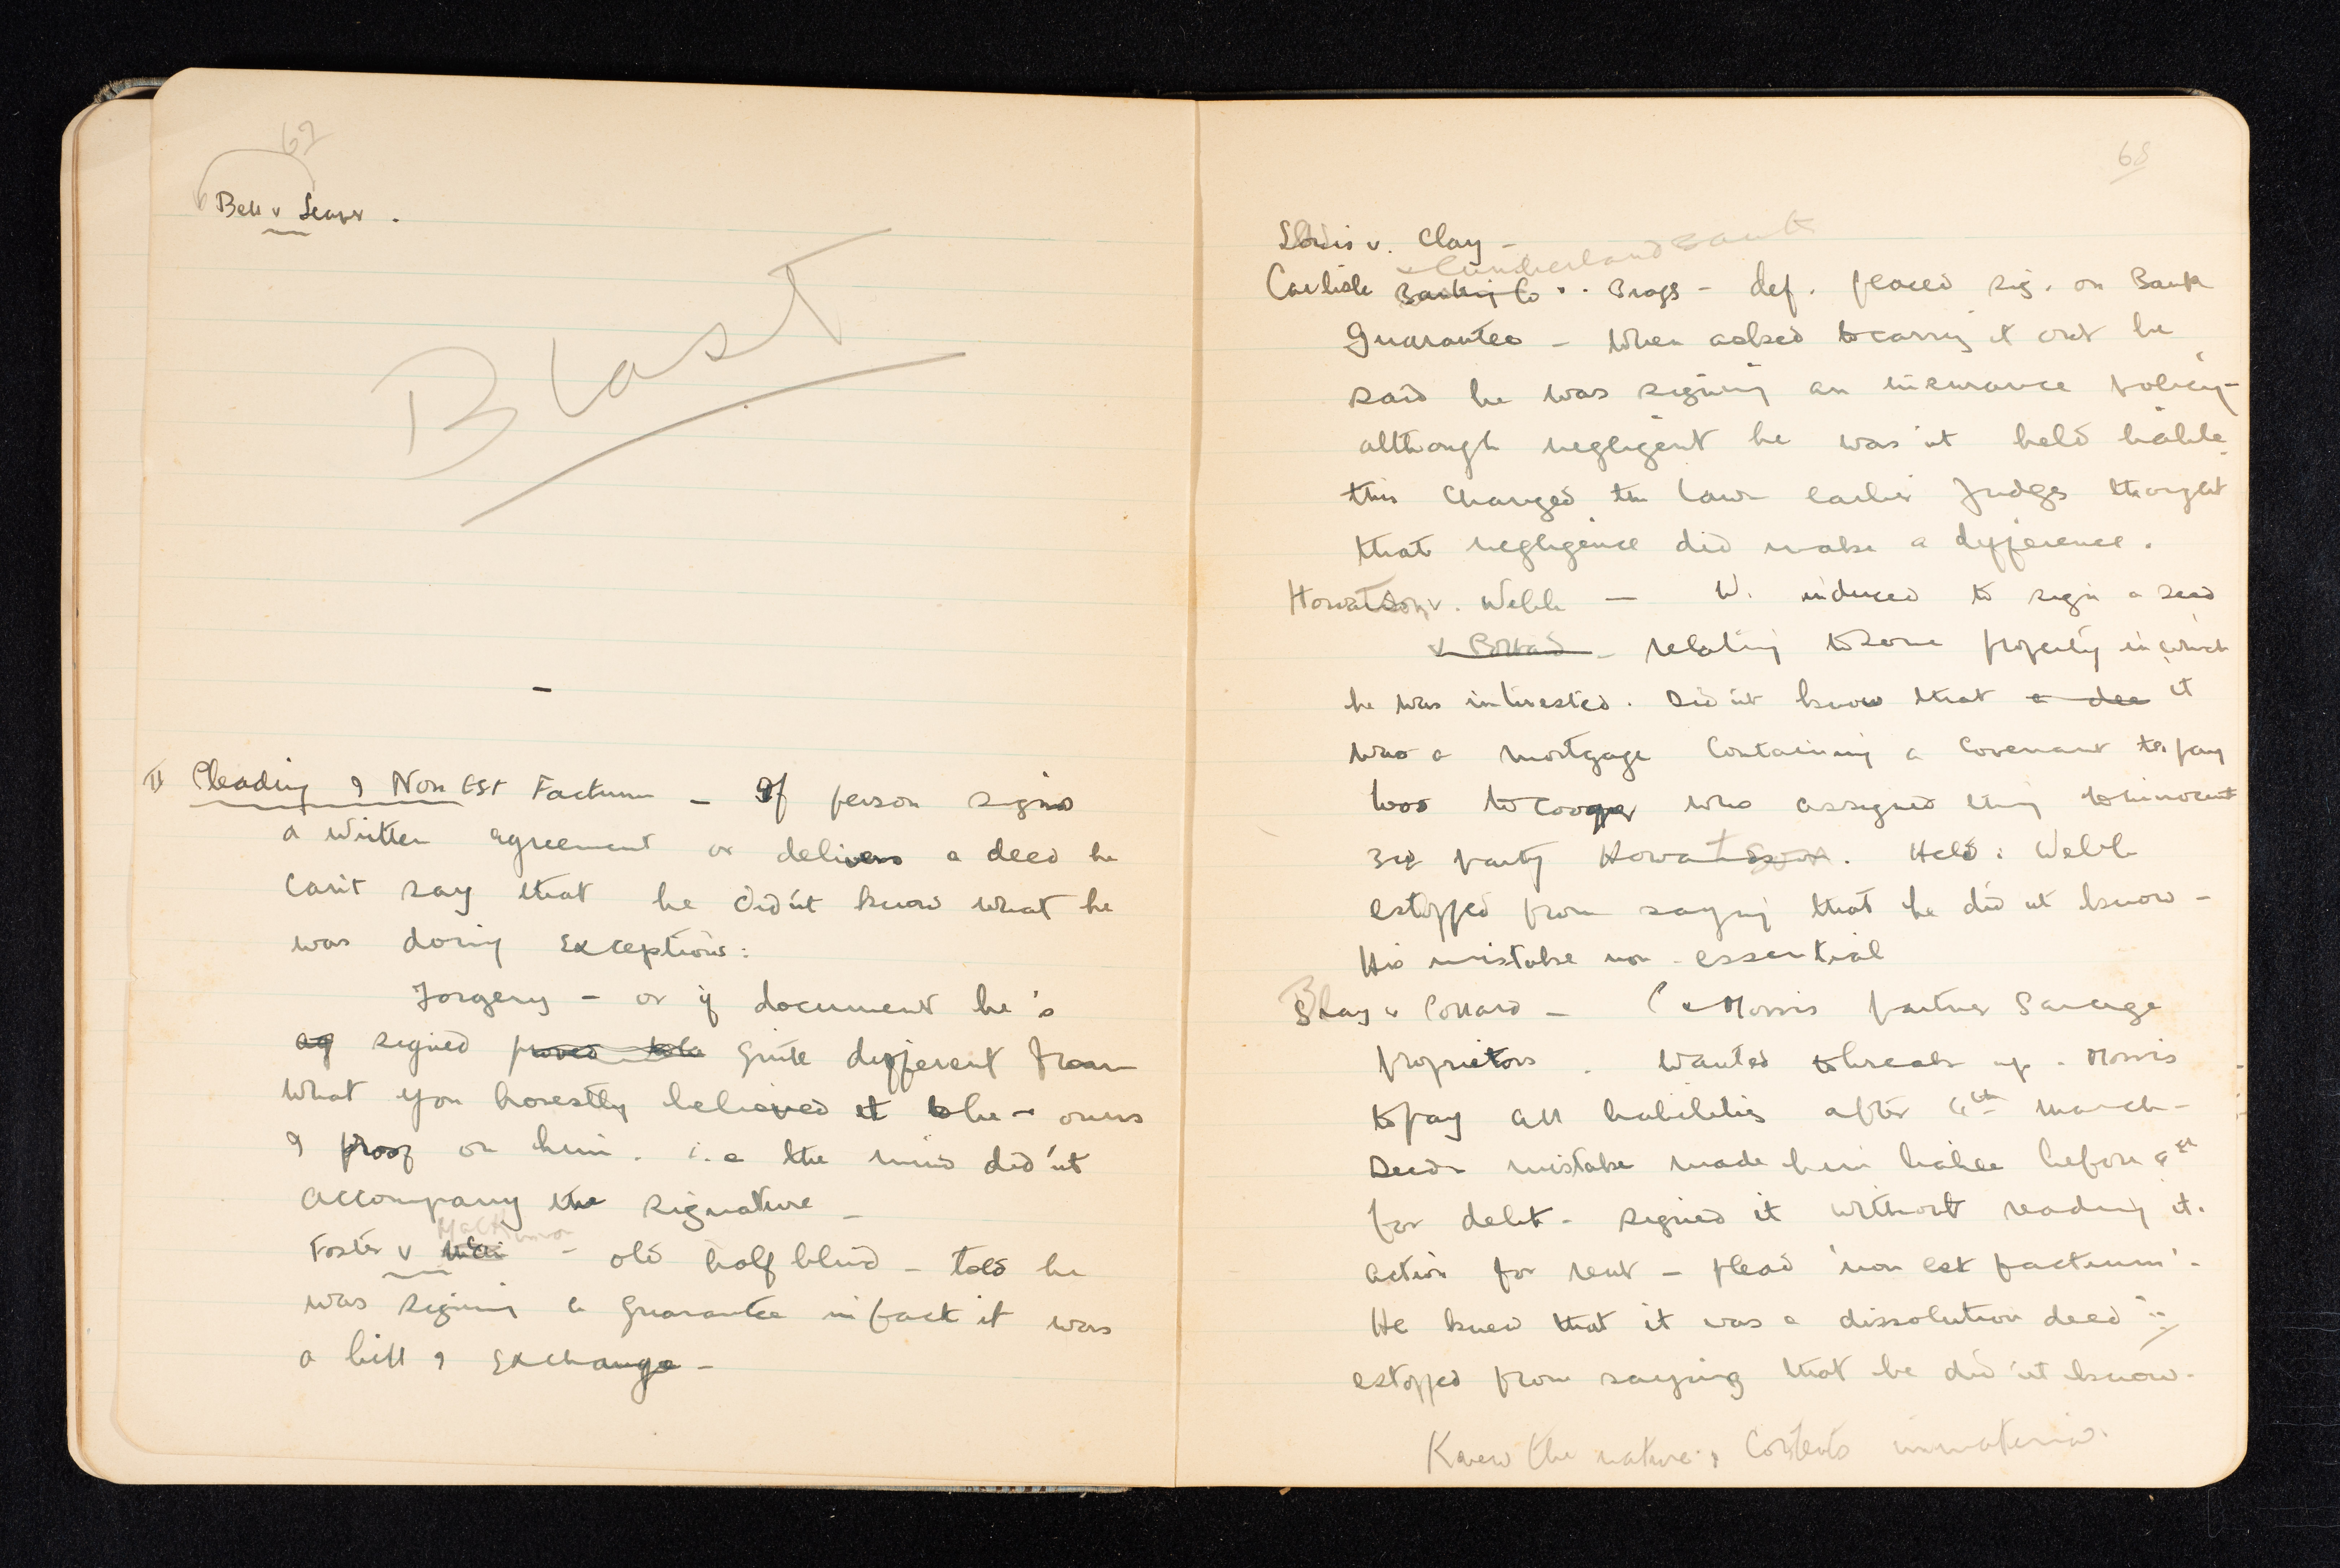 67
Bell v Lever .
Blast
II Pleading of Non Est Factum - If person signs
a written agreement or delivers a deed he
can't say that he did'nt know what he
was doing Exceptions:
Forgery - or if document he's
ag signed proved to be quite different from
what you honestly believed it to be - onus
of proof on him. i.e the mind did'nt
accompany the signature -
Mackinnon
Foster v - old half blind - told he
was signing a guarantee in fact it was
a bill of exchange -
68
Lewis v. Clay -
Cumberland Bank
Carlisle Banking Co v. Brags - def. placed sig. on Bank
Guarantee - When asked to carry it out he
said he was signing an insurance policy -
although negligent he was'nt held liable.
this changed the law earlier Judges thought
that negligence did make a difference.
Howatson v. Webb - W. induced to sign a deed
v Bollard - relating to some property in which
he was interested. Did'nt know that a dee it
was a mortgage containing a covenant to pay
1000 to Cooper who assigned thing to innocent
3rd party Howatson. Held: Webb
estopped from saying that he did'nt know -
His mistake non-essential
Blay v Pollard - ( & Morris partner Garage
proprietors . Wanted to break up. Morris
to pay all liabilities after 4th March -
Deed - mistake made him liable before 4th
for debt - signed it without reading it.
action for rent - plead 'non est factum' -
He knew that it was a dissolution deed ∴
estopped from saying that he did'nt know.
Knew the nature, contents immaterial.